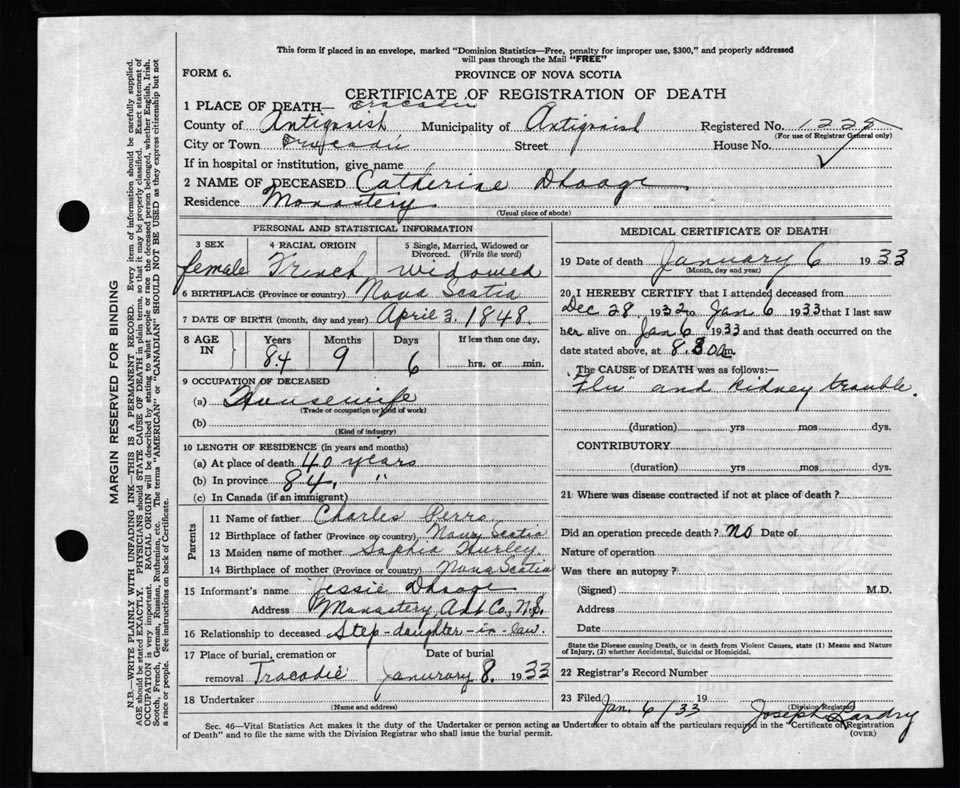 This form if placed in an envelope, marked "Dominion Statistics—Free, penalty for improper use, $300," and properly addressed
will pass through the Mail "FREE"
FORM 6.
PROVINCE OF NOVA SCOTIA
CERTIFICATE OF REGISTRATION OF DEATH
1 PLACE OF DEATH— Tracadie
County of Antigonish Municipality of Antigonish Registered No. 1228
(For use of Registrar General only)
City or Town Tracadie Street House No.
If in hospital or institution, give name
2 NAME OF DECEASED Catherine
Residence Monastery
(Usual place of abode)
PERSONAL AND STATISTICAL INFORMATION
3 SEX 4 RACIAL ORIGIN 5 Single, Married, Widowed or
Divorced. (Write the word)
female French widowed
6 BIRTHPLACE (Province or country) Nova Scotia
7 DATE OF BIRTH (month, day and year) April 3. 1848.
8 AGE IN Years Months Days If less than one day,
84 9 6 hrs. or min.
9 OCCUPATION OF DECEASED
(a) Housewife
(Trade or occupation or kind of work)
(b)
(Kind of industry)
10 LENGTH OF RESIDENCE (in years and months)
(a) At place of death 40 years
(b) In province 84, "
(c) In Canada (if an immigrant)
Parents
11 Name of father Charles Perro
12 Birthplace of father (Province or country) Nova Scotia
13 Maiden name of mother Sophia Hurley.
14 Birthplace of mother (Province or country) Nova Scotia
15 Informant's name Jessie
Address Monastery, Ant Co., N.S.
16 Relationship to deceased Step-daughter-in law.
17 Place of burial, cremation or Date of burial
removal Tracadie Janurary 8. 1933
18 Undertaker
(Name and address)
MEDICAL CERTIFICATE OF DEATH
19 Date of death January 6 1933
(Month, day and year)
20 I HEREBY CERTIFY that I attended deceased from
Dec 28, 1932 to Jan 6 1933 that I last saw
her alive on Jan 6 1933 and that death occurred on
date stated above, at m.
The CAUSE OF DEATH was as follows:—
"Flu" and kidney trouble.
(duration) yrs mos dys.
CONTRIBUTORY
(duration) yrs mos dys.
21 Where was disease contracted if not at place of death?
Did an operation precede death? No Date of
Nature of operation
Was there an autopsy?
(Signed) M.D.
Address
Date
State the Disease causing Death, or in death from Violent Causes, state (1) Means and Nature
of Injury, (2) whether Accidental, Suicidal or Homicidal.
22 Registrar's Record Number
23 Filed Jan. 6/33 19
(Division Registrar)
Joseph Landry
Sec. 46—Vital Statistics Act makes it the duty of the Undertaker or person acting as Undertaker to obtain all the particulars required in the "Certificate of Registration
of Death" and to file the same with the Division Registrar who shall issue the burial permit.
(OVER)
MARGIN RESERVED FOR BINDING
N.B.—WRITE PLAINLY WITH UNFADING INK—THIS IS A PERMANENT RECORD. Every item of information should be carefully supplied.
AGE should be stated EXACTLY. PHYSICIANS should STATE CAUSE OF DEATH in plain terms, so that it may be properly classified. Exact statement of
OCCUPATION is very important. RACIAL ORIGIN will be described by stating to what people or race the deceased person belonged, whether English, Irish,
Scotch, French, German, Russian, Ruthenian, etc. The terms "AMERICAN" or "CANADIAN" SHOULD NOT BE USED as they express citizenship but not
a race or people. See instructions on back of Certificate.